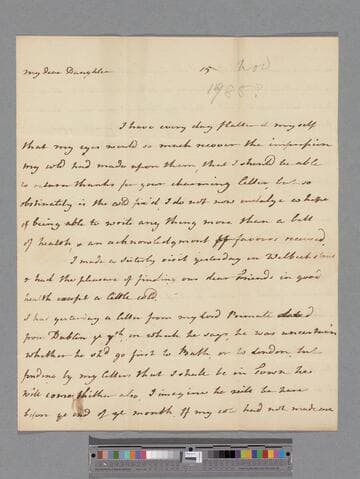 My dear Daughter 15 Nov
178
I have every day flatter'd myself
that my eyes would so much recover the impression
my cold had made upon them, that I should be able
to return thanks for your charming letter but so
obstinately is the cold fix'd I do not now indulge a hope
of being able to write any thing more than a bill
of health & an acknowledgment of favors received.
I made a Saturday visit yesterday in Welbeck street
& had the pleasure of finding our dear Friends in good
health except a little cold.
I had yesterday a letter from my Lord Primate dated
from Dublin ye 9th in which he says, he was uncertain
whether he sh'd go first to Bath or to London, but
finding by my letters that I shall be in Town he
will come hither also, I imagine he will be here
before ye end of ye month. If my cold had not made me